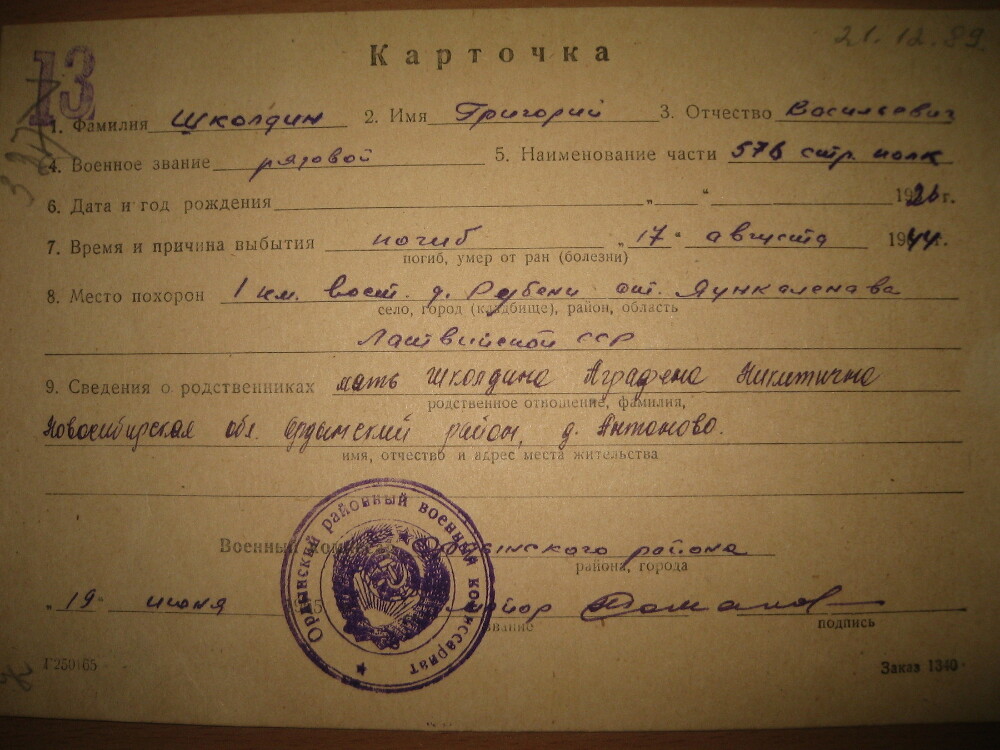 13
21.12.89.
Карточка
1. Фамилия Школдин 2. Имя Григорий 3. Отчество Васильевич
4. Военное звание рядовой 5. Наименование части 578 стр. полк
6. Дата и год рождения „ “ 1926 г.
7. Время и причина выбытия погиб „17“ августа 1944 г.
погиб, умер от ран (болезни)
8. Место похорон 1 км. вост. д. Рубени
село, город (кладбище), район, область
Латвийской ССР
9. Сведения о родственниках мать Школдина Аграфена Никитична
родственное отношение, фамилия,
Новосибирская обл. Ордынский район, д. Антоново.
имя, отчество и адрес места жительства
Военный Ордынского района
района, города
„19“ июня майор
звание подпись
Ордынский районный военный комиссариат
Г250165 Заказ 1340